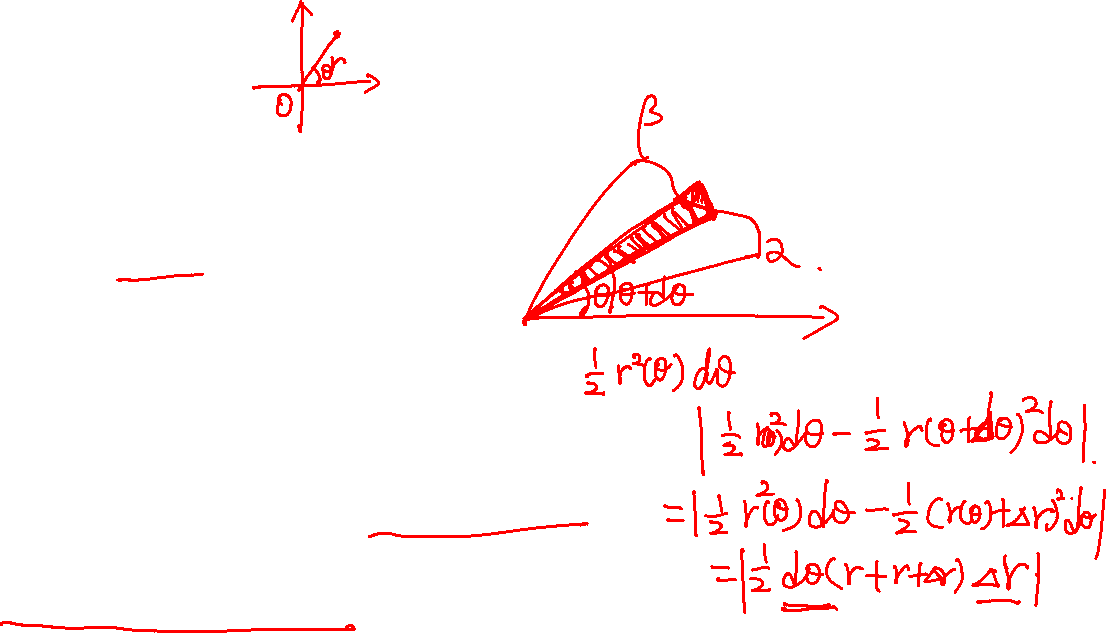 θ r
O
β
α
θ θ+dθ
1/2 r²(θ) dθ
|1/2 r²(θ)dθ - 1/2 r(θ+dθ)²dθ|.
=|1/2 r²(θ)dθ - 1/2 (r(θ)+Δr)²dθ|
=|1/2 dθ(r+r+Δr) Δr|